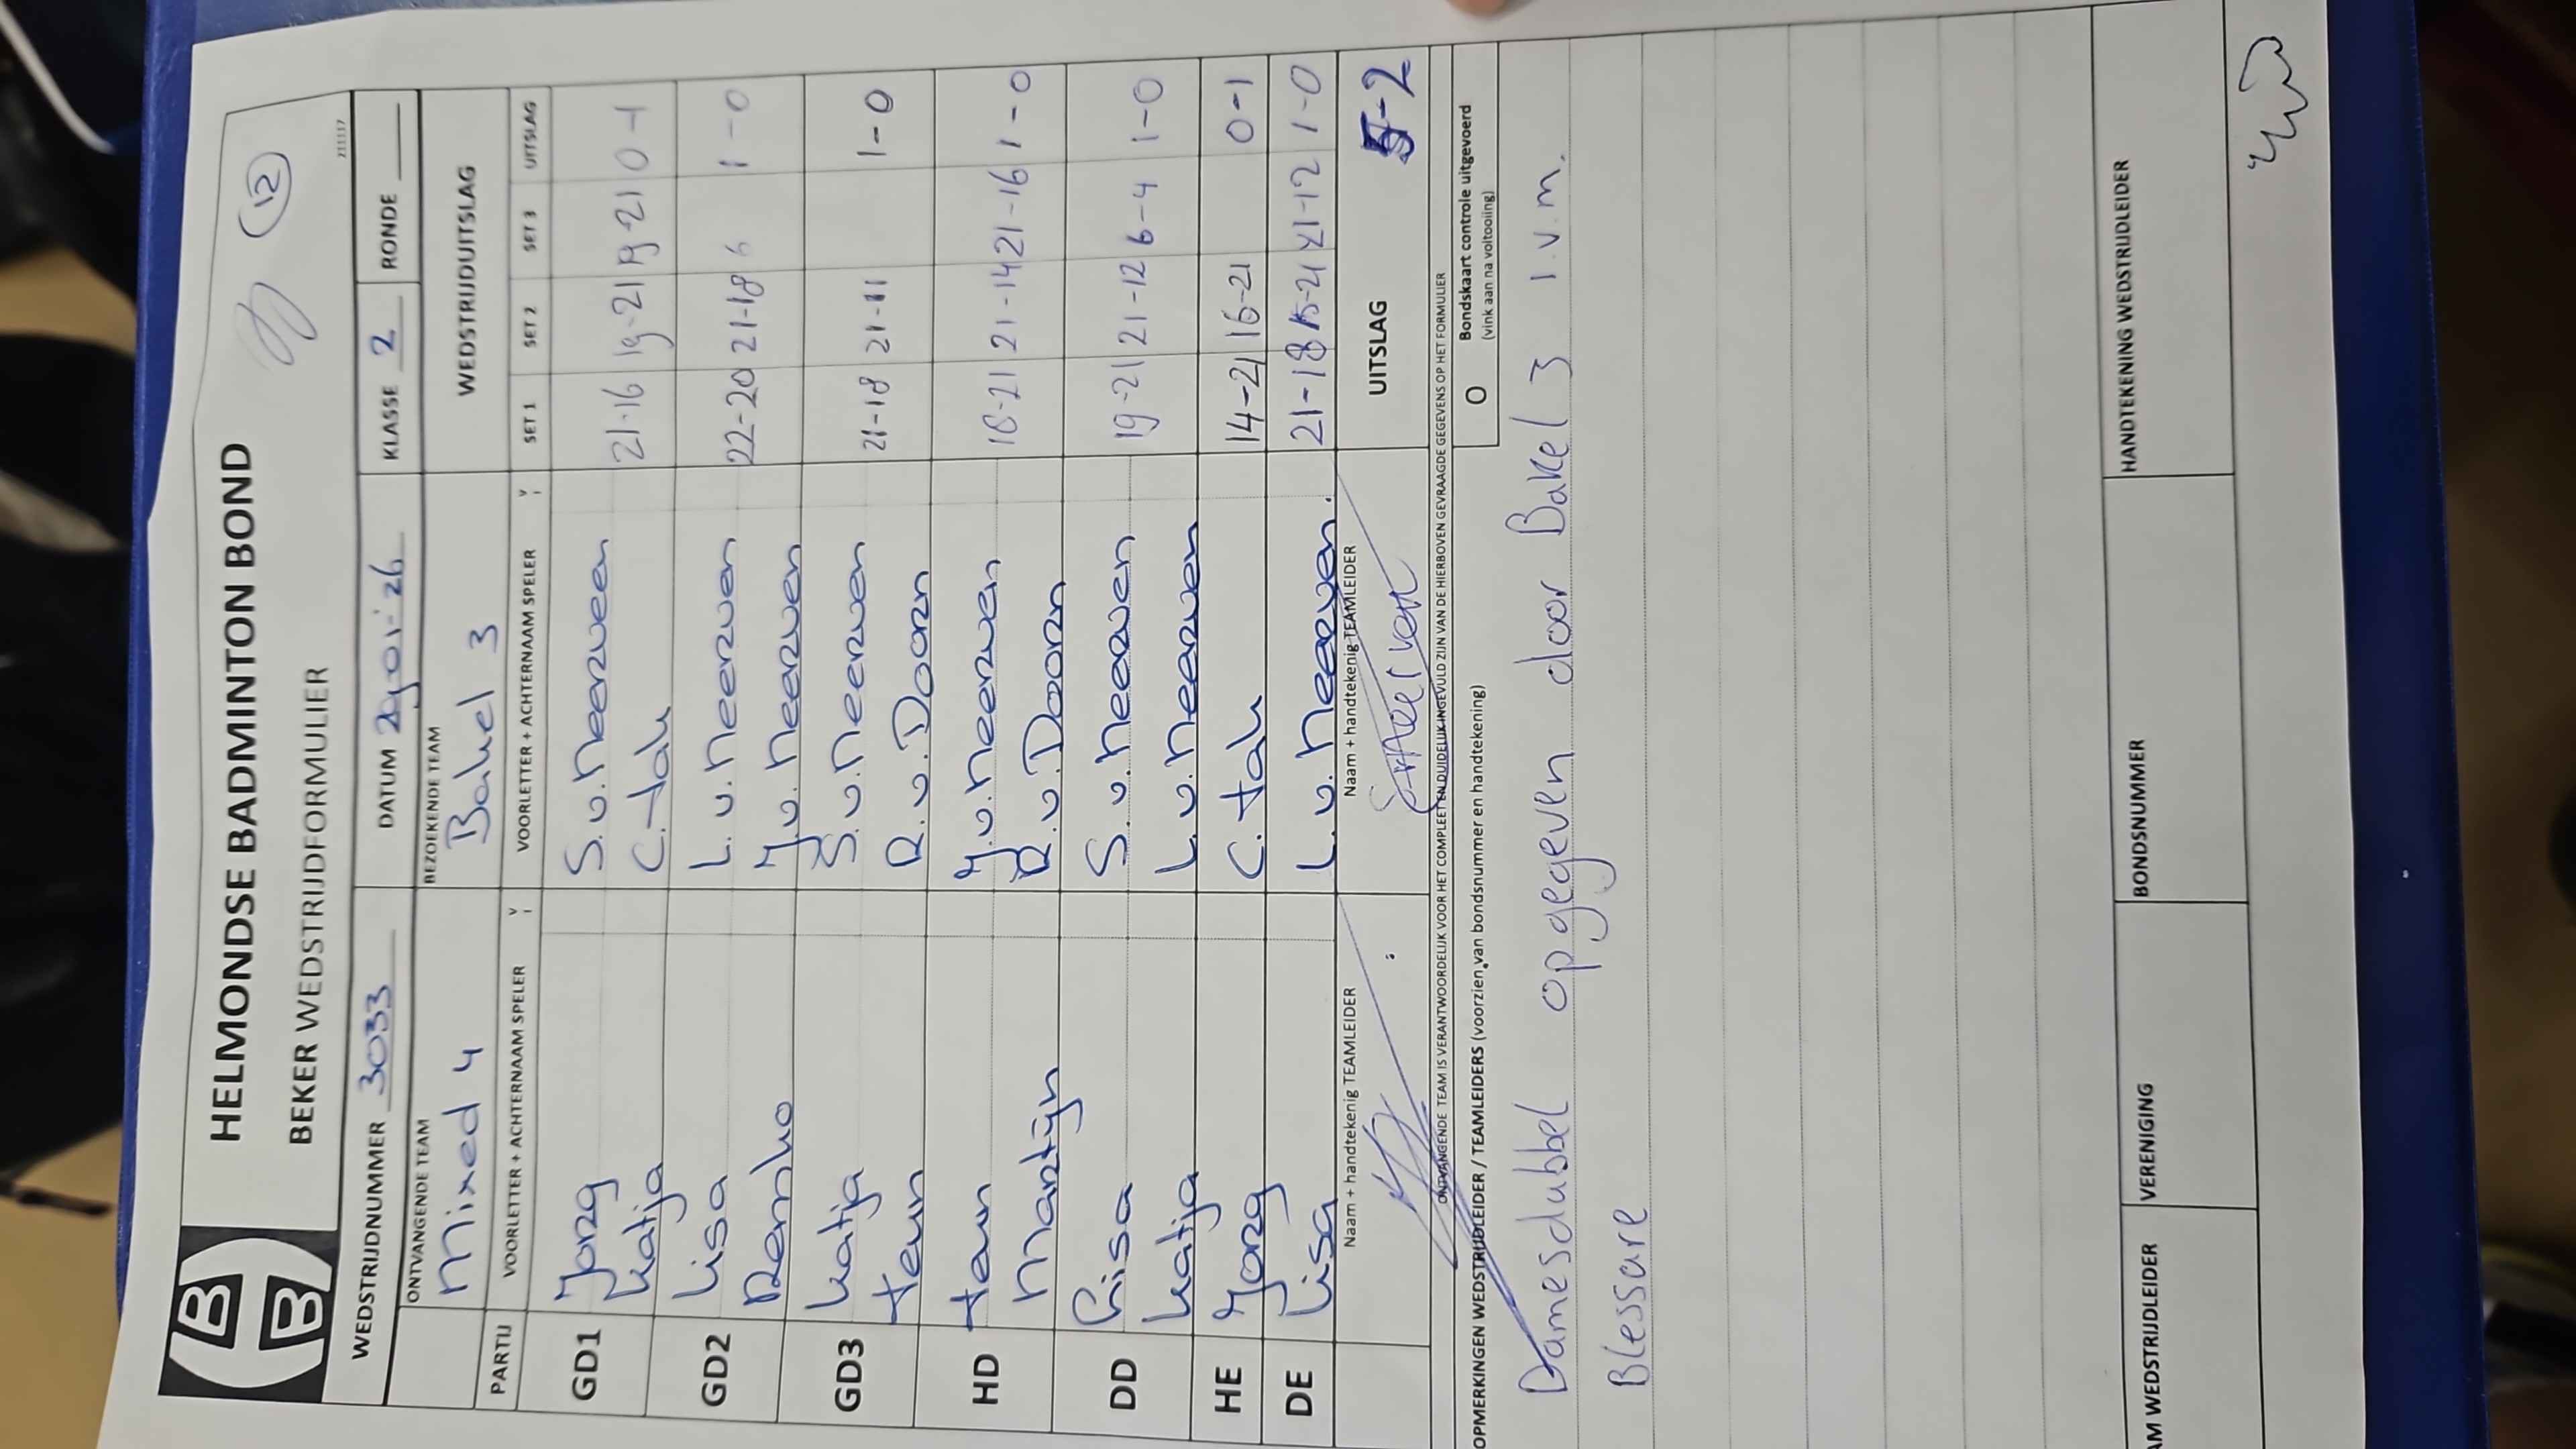 HELMONDSE BADMINTON BOND
12
BEKER WEDSTRIJDFORMULIER
231117
WEDSTRIJDNUMMER 3033 DATUM 29 01-'26 KLASSE 2 RONDE
ONTVANGENDE TEAM BEZOEKENDE TEAM WEDSTRIJDUITSLAG
Mixed 4 Bakel 3
PARTIJ VOORLETTER + ACHTERNAAM SPELER V VOORLETTER + ACHTERNAAM SPELER V SET 1 SET 2 SET 3 UITSLAG
GD1 Jorg S.v.Neerveen
Katija C.tak 21-16 19-21 19-21 0-1
GD2 Lisa L.v.Neerven
Remko J.v.Neerven 22-20 21-18 1-0
GD3 Katija S.v.Neerven
teun R.v.Doorn 21-18 21-11 1-0
HD teun J.v.Neerven
Martijn R.v.Doorn 18-21 21-14 21-16 1-0
DD Lisa S.v.Neerven
Katija L.v.Neerven 19-21 21-12 6-4 1-0
HE Jorg C.tak 14-21 16-21 0-1
DE Lisa L.v.Neerven. 21-18 15-21 21-12 1-0
Naam + handtekenig TEAMLEIDER Naam + handtekenig TEAMLEIDER UITSLAG 5-2
ONTVANGENDE TEAM IS VERANTWOORDELIJK VOOR HET COMPLEET EN DUIDELIJK INGEVULD ZIJN VAN DE HIERBOVEN GEVRAAGDE GEGEVENS OP HET FORMULIER
OPMERKINGEN WEDSTRIJDLEIDER / TEAMLEIDERS (voorzien van bondsnummer en handtekening) O Bondskaart controle uitgevoerd
(vink aan na voltooiing)
Damesdubbel opgegeven door Bakel 3 i.v.m.
Blessure
AM WEDSTRIJDLEIDER VERENIGING BONDSNUMMER HANDTEKENING WEDSTRIJDLEIDER